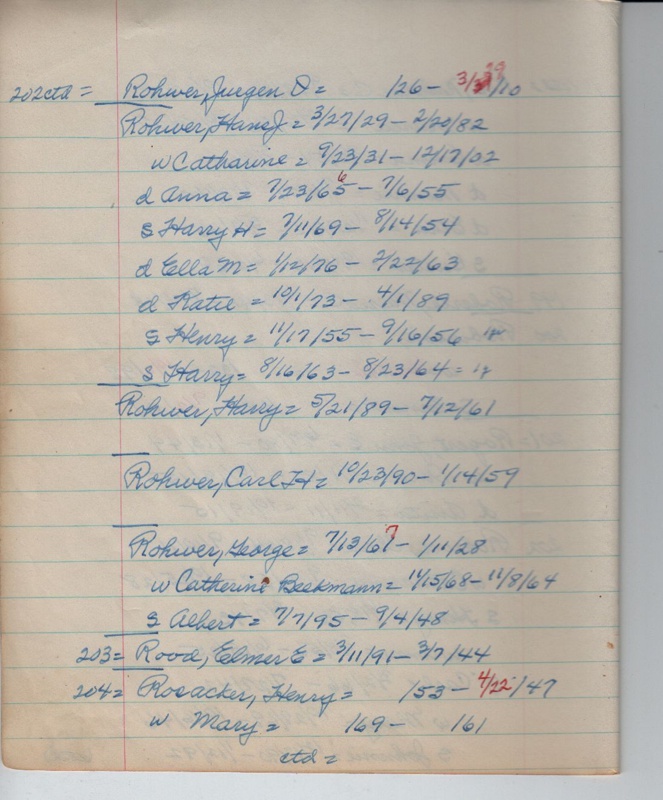 202ctd = Rohwer, Juergen D = /26 - 3/29/10
Rohwer, Hans J. = 3/27/29 - 2/20/82
w Catharine = 9/23/31 - 12/17/02
d Anna = 7/23/66 - 7/6/55
s Harry H = 7/11/69 - 8/14/54
d Ella M = 1/12/76 - 2/22/63
d Katie = 10/1/73 - 4/1/89
s Henry = 11/17/55 - 9/16/56 1yr
s Harry = 8/16/63 - 8/23/64 = 1yr
Rohwer, Harry = 5/21/89 - 7/12/61
Rohwer, Carl H = 10/23/90 - 1/14/59
Rohwer, George = 7/13/67 - 1/11/28
w Catherine Beekmann = 11/15/68 - 11/8/64
s Albert = 7/7/95 - 9/4/48
203 = Rood, Elmer E = 3/11/91 - 3/7/44
204 = Rosacker, Henry = /53 - 4/22/47
w Mary = 169 - 161
ctd =